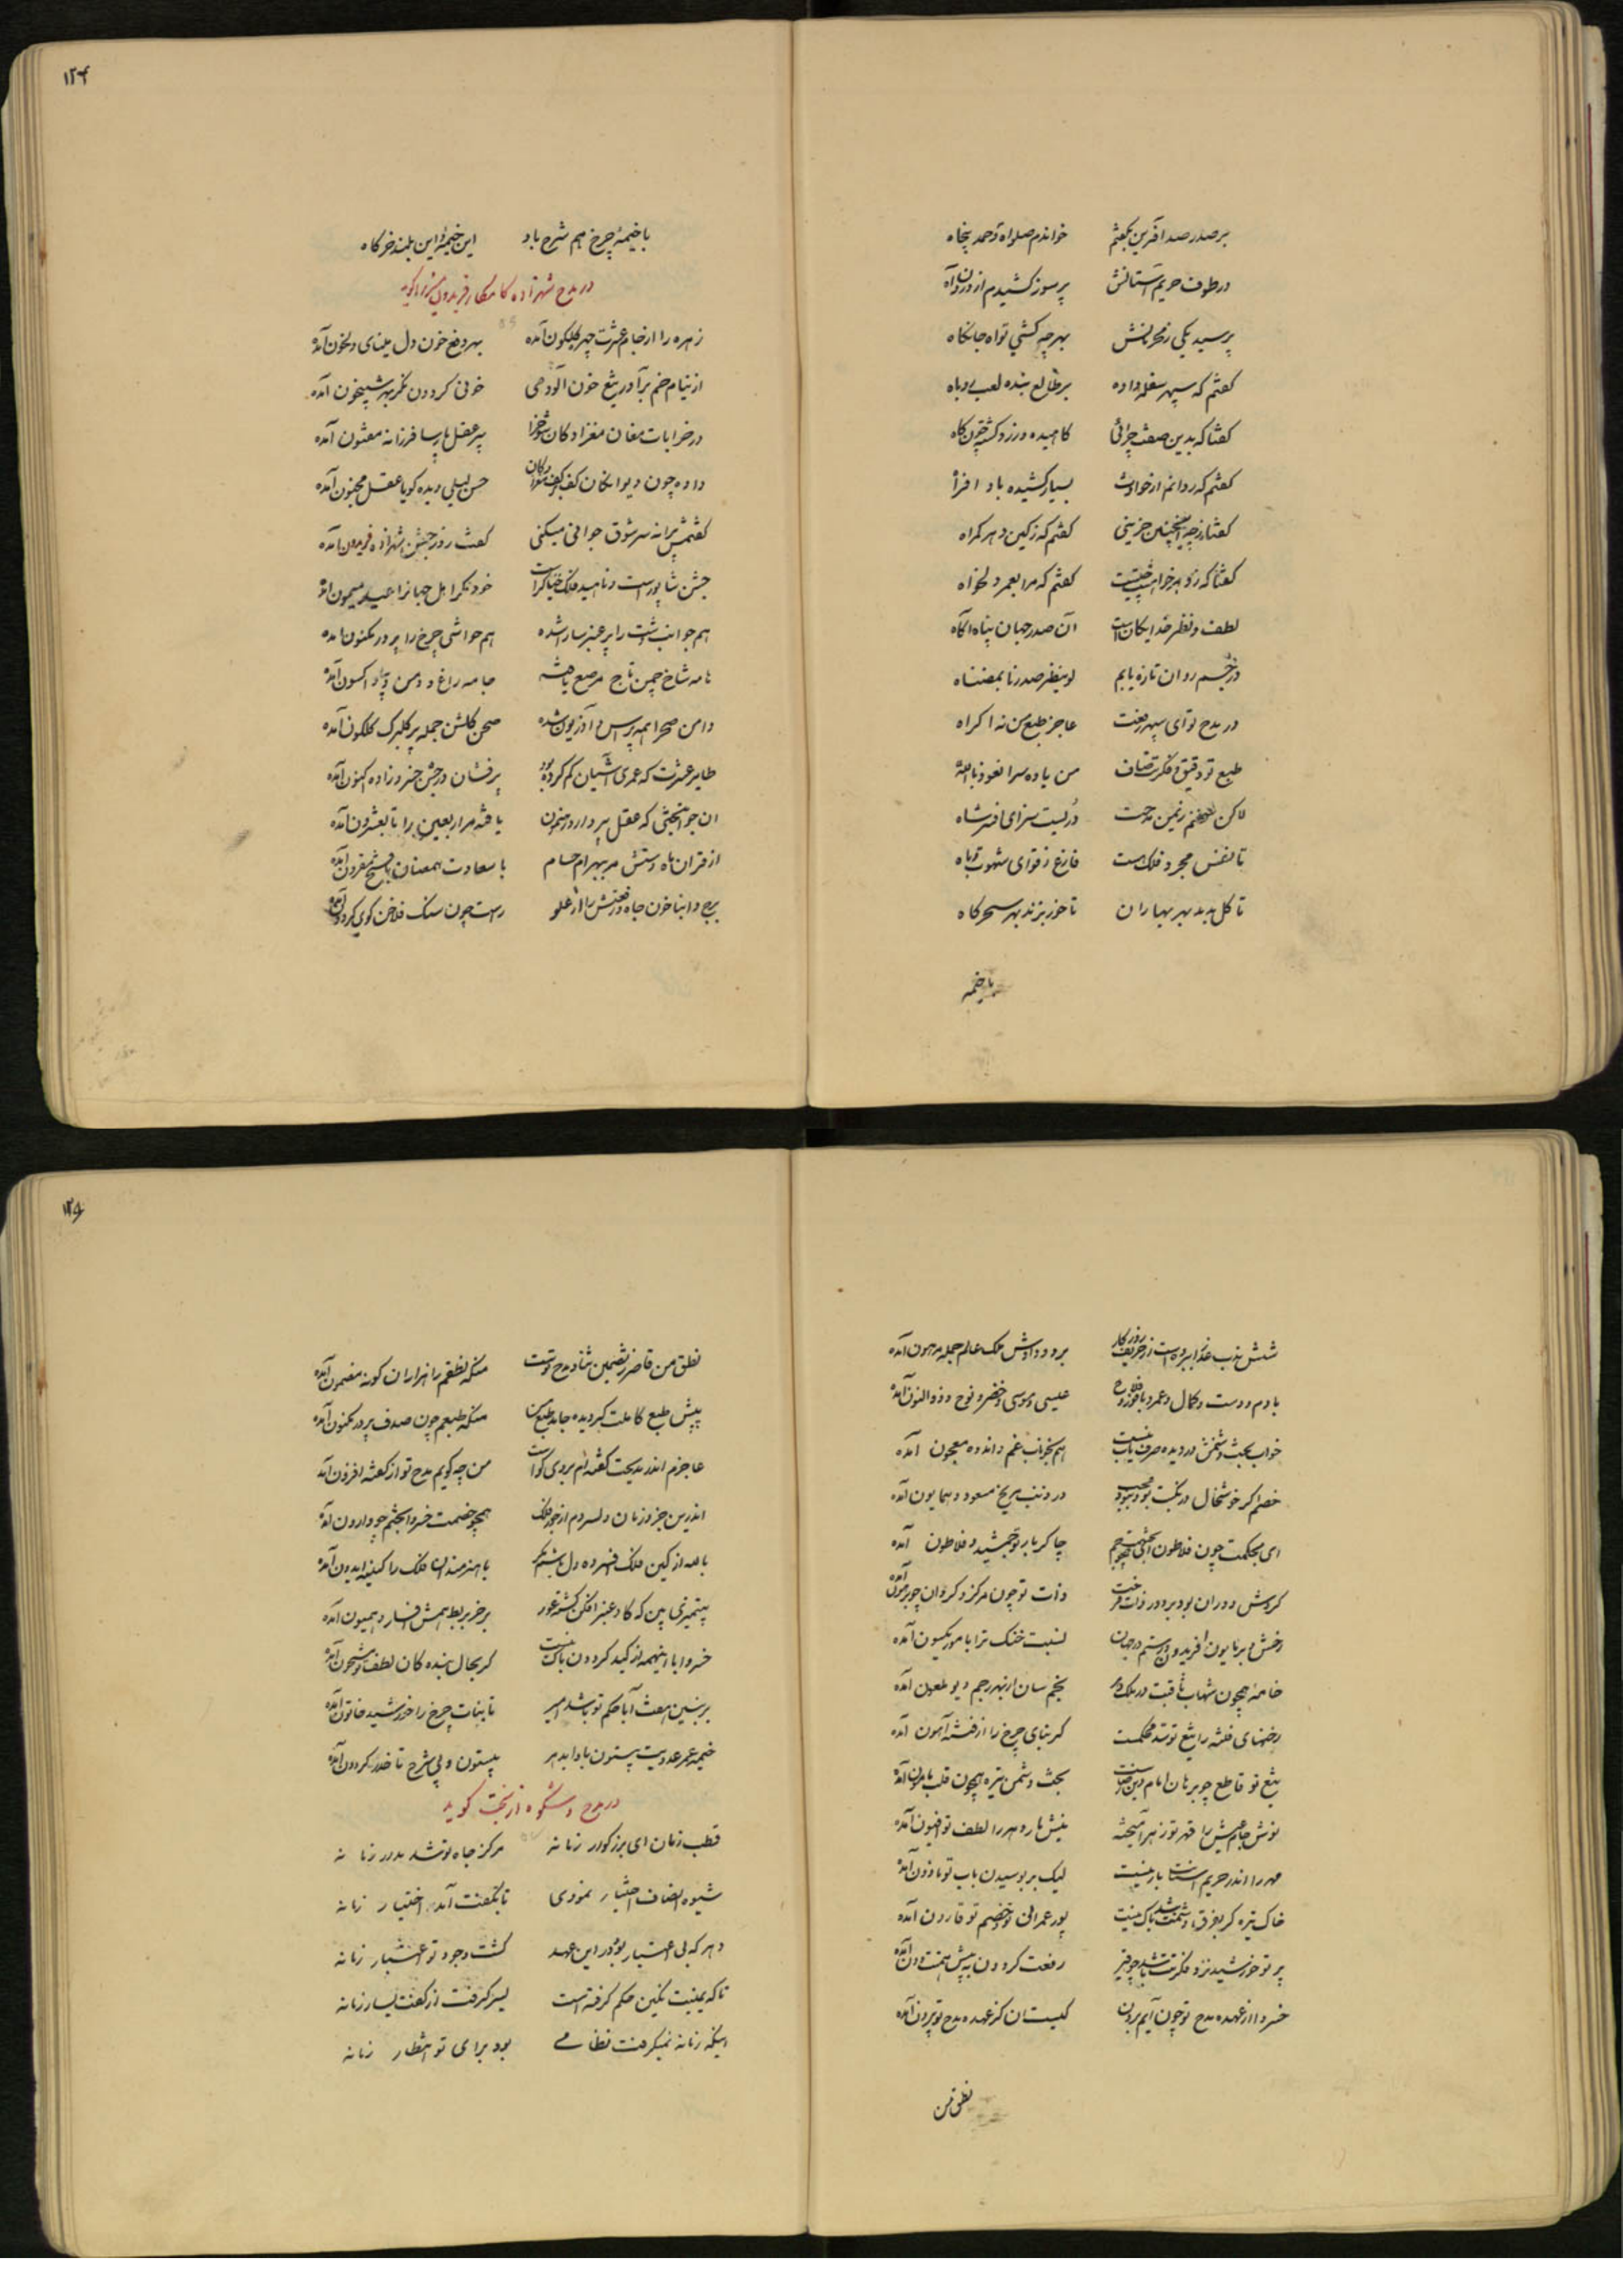 بر صدر صد آفرین بگفتم خواندم صلواة و حمد پنجاه
در طوف حریم آستانش پرسوز کشیدم از درون آه
پرسید یکی ز محرمانش بهر چه کشی تو آه جانکاه
گفتم که سپهر سفله داده بر طالع بنده لعب روباه
گفتا که بدین صفت چرائی کاهیده و زرد گشته چون کاه
گفتم که روانم از حوادث بسیار کشیده باد افراه
گفتا ز چه اینچنین حزینی گفتم که ز کین دهر گمراه
گفتا که ز دهر خواهشت چیست گفتم که مرا بعمر دلخواه
لطف و نظر خدایگان است آن صدر جهان پناه آگاه
در جسم روان تازه یابم لو ینظر صدرنا بمضناه
در مدح تو ای سپهر رفعت عاجز طبع من نه اکراه
طبع تو دقیق و فکرت صاف من یاوه سرا نعوذ بالله
لاکن سخنم ز یمن مدحت دریست سزای افسر شاه
تا نفس مجرد فلک هست فارغ ز قوای شهوت و باه
تا گل بدمد بهر بهاران تا خور بزند بهر سحرگاه
با خیمه
۱۲۴
با خیمهٔ چرخ هم شرح باد این خیمهٔ و این بلند خرگاه
در مدح شهزاده کامکار فریدون میرزا گوید
زهره را از جام عشرت چهر گلگون آمده بهر دفع خون دل مینای دلخون آمده
از نیام خم برآور تیغ خون آلود می خونی گردون نگر بهر شبیخون آمده
در خرابات مغان مغزادگان شوخ را پیر عقل پارسا فرزانه مفتون آمده
داده چون دیوانگان کف بر کف حسن لیلی دیده گویا عقل مجنون آمده
گفتمش پیرانه سر شوق جوانی میکنی گفت روز جشن شهزاده فریدون آمده
جشن شاپور است و ناهید فلک خنیاگر است خود نگر اهل جهانرا عید میمون آمده
هم جوانب دشت را پر عنبر سارا شده هم حواشی چرخ را پر در مکنون آمده
نامه شاخ چمن تاج مرصع یافته جامه راغ و دمن دیبا و اکسون آمده
دامن صحرا همه پر سیم و آذریون شده صحن گلشن جمله پر گلبرگ گلگون آمده
طایر عشرت که عمری آشیان گم کرده بود پرفشان در جشن خسروزاده اکنون آمده
آن جوانبختی که عقل پیر دارد یافته مر اربعین را تا بعشرون آمده
از قران ماه دستش مر بهرام حسام با سعادت همعنان با فتح مقرون آمده
خون جاه و رفعتش را از علو راست چون سنگ فلاخن گوی گردون آمده
شش برود دادش ملک عالم جمله مرهون آمده
عیسی و موسی و خضر و نوح و ذوالنون آمده
خواب بجفت دشمنش در دیده هم بخوناب غم و اندوه معجون آمده
خصم اگر خوشحال در ذنب مریخ مسعود و همایون آمده
ای بحکمت چون فلاطون چاکر بار تو جمشید و فلاطون آمده
گردش دوران بود بر دور ذات ذات تو چون مرکز و گردان چو پرهون آمده
رخش و بر مایون افریدون و رستم در جهان نسبت خنگ ترا با موریکسون آمده
خامهٔ همچون شهاب ثاقبت در ملک نجم سان از بهر رجم دیو ملعون آمده
رخنهای فتنه را تیغ تو سد محکمست گر بنای چرخ را از فتنه آهون آمده
تیغ تو قاطع چو برهان امام دین بخت دشمن تیره همچون قلب مأمون آمده
نوش جام عیش را قهر تو زهر آمیخته نیش مار دهر را لطف تو افیون آمده
مهر را اندر حریم آستانت بار نیست لیک بر بوسیدن باب تو ماذون آمده
خاک تیره گر بفرق دشمنت شد باک نیست پور عمرانی تو و خصم تو قارون آمده
پرتو خورشید نزد فکرتت رفعت گردون به پیش همتت دون آمده
خسروا از عهده مدح تو چون آیم برون کیست آن کز عهده مدح تو بیرون آمده
نطق من
۱۲۵
نطق من قاصر ز تضمین ثنا و مدح توست منکه نطقم را هزاران گونه مضمون آمده
پیش طبع کاملت گردیده جامد طبع من منکه طبعم چون صدف پر در مکنون آمده
عاجزم اندر مدیحت گفته ام من چه گویم مدح تو از گفته افزون آمده
اندرین جز و زمان دلسردم از جور فلک همچو خصمت خسروا بختم چو وارون آمده
بالله از کین فلک افسرده دل گشتم مگر با هنرمندان فلک را کینه ایدون آمده
بیتمیزی بین که گاو عنبر افکن گشته عور بر خر بربط همش افسار و همیون آمده
خسروا با اینهمه از کید گردون باک نیست گر بحال بنده کان لطف تو مشحون آمده
بر بنین هفت آبا حکم تو باشد امیر تا بنات چرخ را خورشید خاتون آمده
خیمه عمر عدویت بیستون بادا بدهر بیستون و بی شرح تا خدر گردون آمده
در مدح و شکوه از بخت گوید
قطب زمان ای بزرگوار زمانه مرکز جاه تو شد مدار زمانه
شیوه انصاف اختیار نمودی تا بکفت آمد اختیار زمانه
دهر که بی اعتبار بود در این عهد گشت وجود تو اعتبار زمانه
تا که یمینت نگین حکم گرفته است یسر گرفت از کفت یسار زمانه
اینکه زمانه نمیگرفت نظامی بود برای تو انتظار زمانه